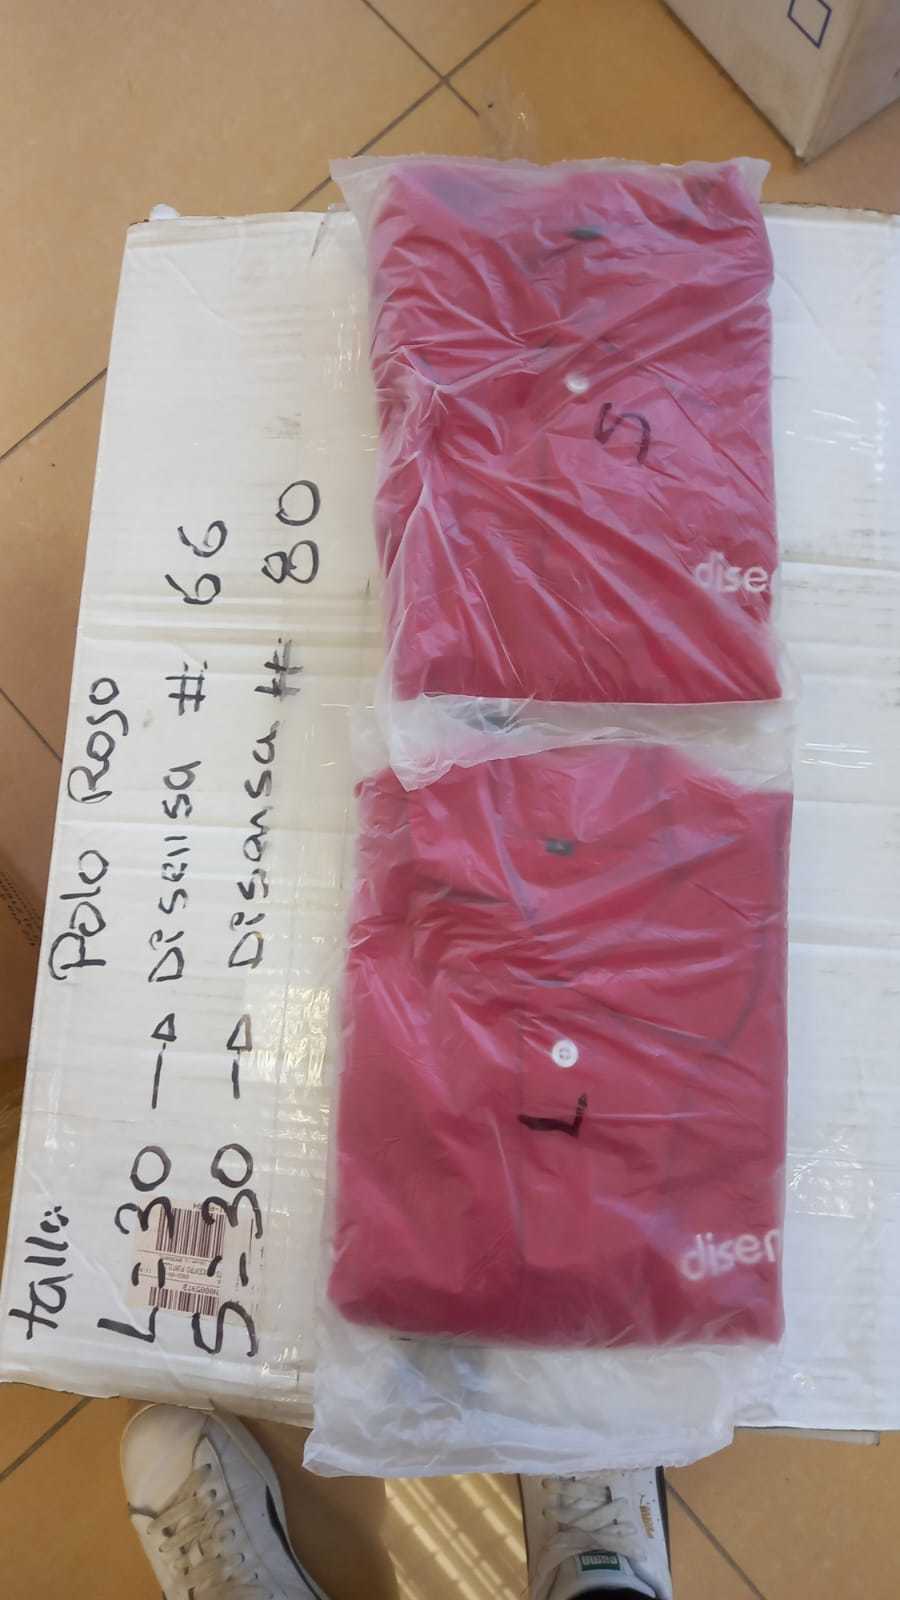 Polo Rojo
talla:
L - 30 → Disensa #: 66
S - 30 → Disansa #: 80
S
disen
L
disen
PUMA